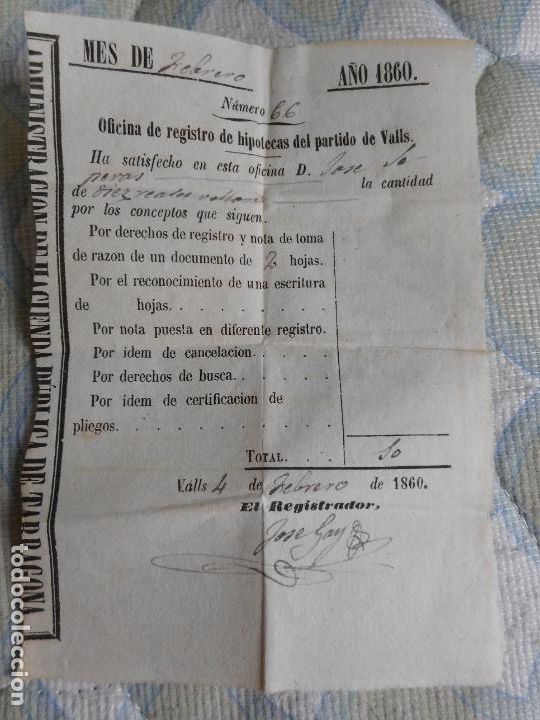 MES DE Febrero AÑO 1860.
Número 66
Oficina de registro de hipotecas del partido de Valls.
Ha satisfecho en esta oficina D. Jose So-
peras la cantidad
de diez reales vellon
por los conceptos que siguen.
Por derechos de registro y nota de toma
de razon de un documento de 2 hojas.
Por el reconocimiento de una escritura
de hojas. . . . . . . .
Por nota puesta en diferente registro.
Por idem de cancelacion. . . . .
Por derechos de busca. . . . . .
Por ídem de certificacion de
pliegos. . . . . . . . . .
TOTAL. . . . 10
Valls 4 de Febrero de 1860.
El Registrador,
Jose Gay
ADMINISTRACION DE HACIENDA PÚBLICA DE TARRAGONA
todocoleccion.net